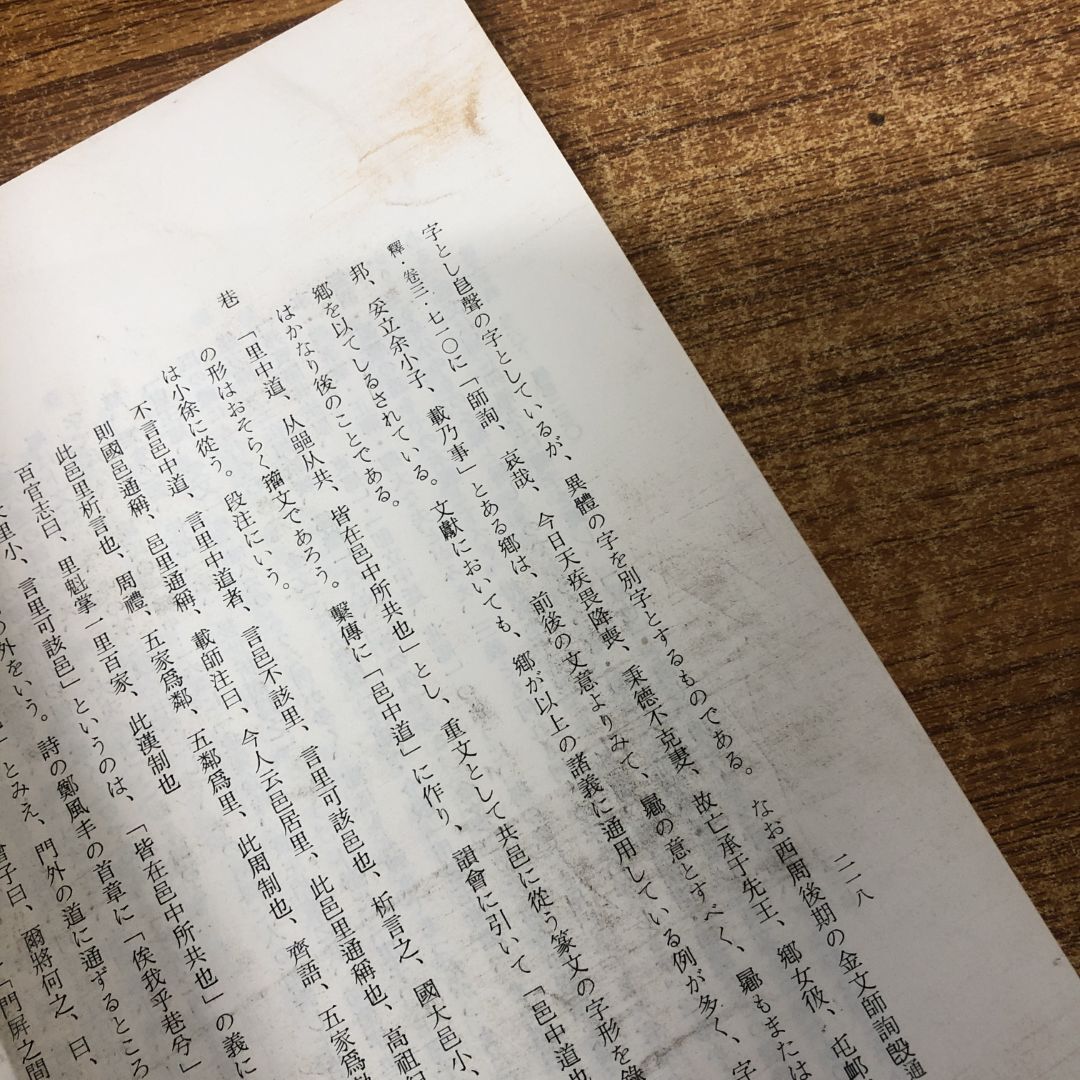 二一八
字とし自聲の字としているが、異體の字を別字とするものである。なお西周後期の金文師詢𣪘通
釋・卷三・七一〇に「師詢、哀哉、今日天疾畏降喪、秉德不克妻、故亡承于先王、鄉女彶、屯卹
邦、妥立余小子、載乃事」とある鄉は、前後の文意よりみて、嚮の意とすべく、嚮もまたは
鄉を以てしるされている。文獻においても、鄉が以上の諸義に通用している例が多く、字
はかなり後のことである。
巷
「里中道、从𨛜从共、皆在邑中所共也」とし、重文として共邑に從う篆文の字形を錄
の形はおそらく籒文であろう。繫傳に「邑中道」に作り、韻會に引いて「邑中道也
は小徐に從う。段注にいう。
不言邑中道、言里中道者、言邑不該里、言里可該邑也、析言之、國大邑小、
則國邑通稱、邑里通稱、載師注曰、今人云邑居里、此邑里通稱也、高祖
此邑里析言也、周禮、五家爲鄰、五鄰爲里、此周制也、齊語、五家爲
百官志曰、里魁掌一里百家、此漢制也
里小、言里可該邑」というのは、「皆在邑中所共也」の義に
の外をいう。詩の鄭風丰の首章に「俟我乎巷兮」
とみえ、門外の道に通ずるところ
子曰、爾將何之、曰、
「門屛之間